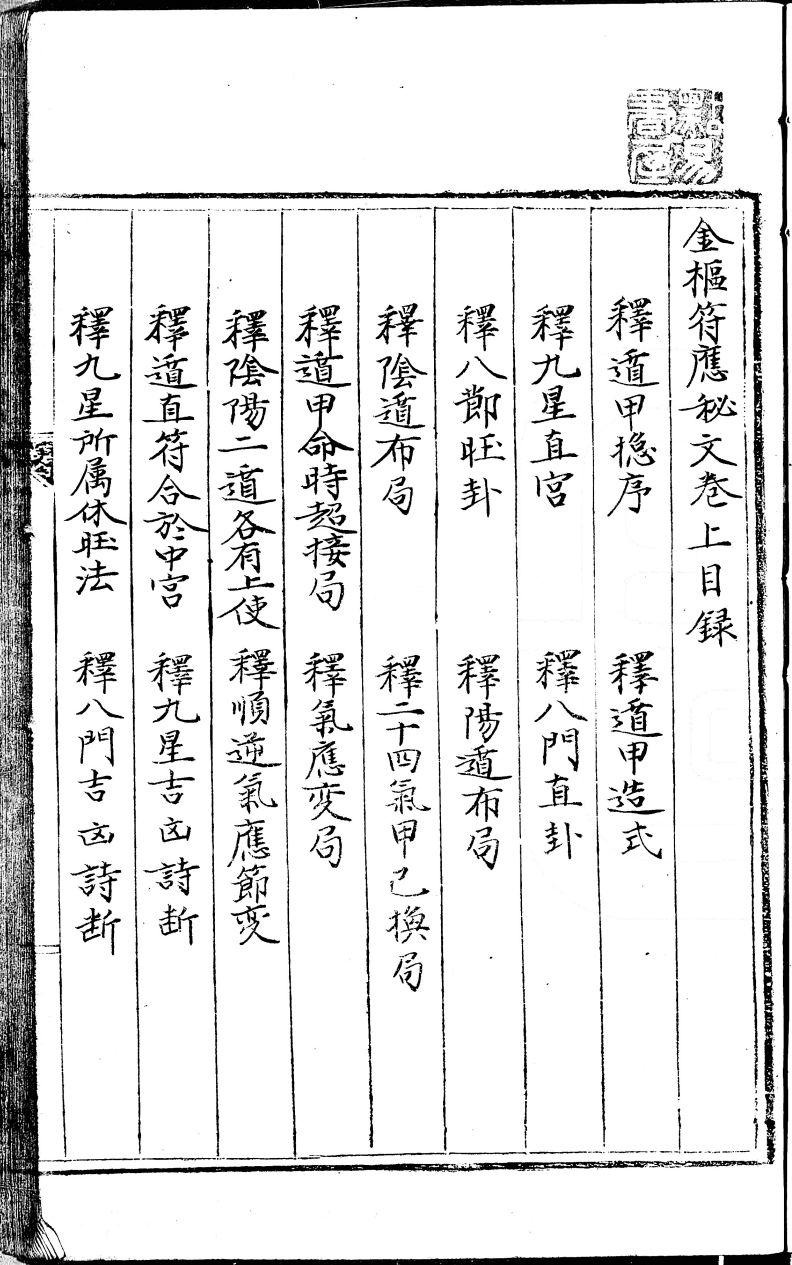 點易書屋
金樞符應秘文巻上目録
釋遁甲捴序 釋遁甲造式
釋九星直宮 釋八門直卦
釋八節旺卦 釋陽遁布局
釋陰遁布局 釋二十四氣甲己換局
釋遁甲命時超接局 釋氣應変局
釋陰陽二遁各有上使 釋順逆氣應節変
釋遁直符合於中宮 釋九星吉凶詩断
釋九星所属休旺法 釋八門吉凶詩断